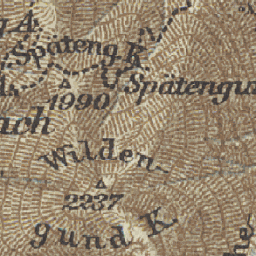 g A.
Späteng. K.
Spätengu
1990
ach
Wilden-
2237
gund K.